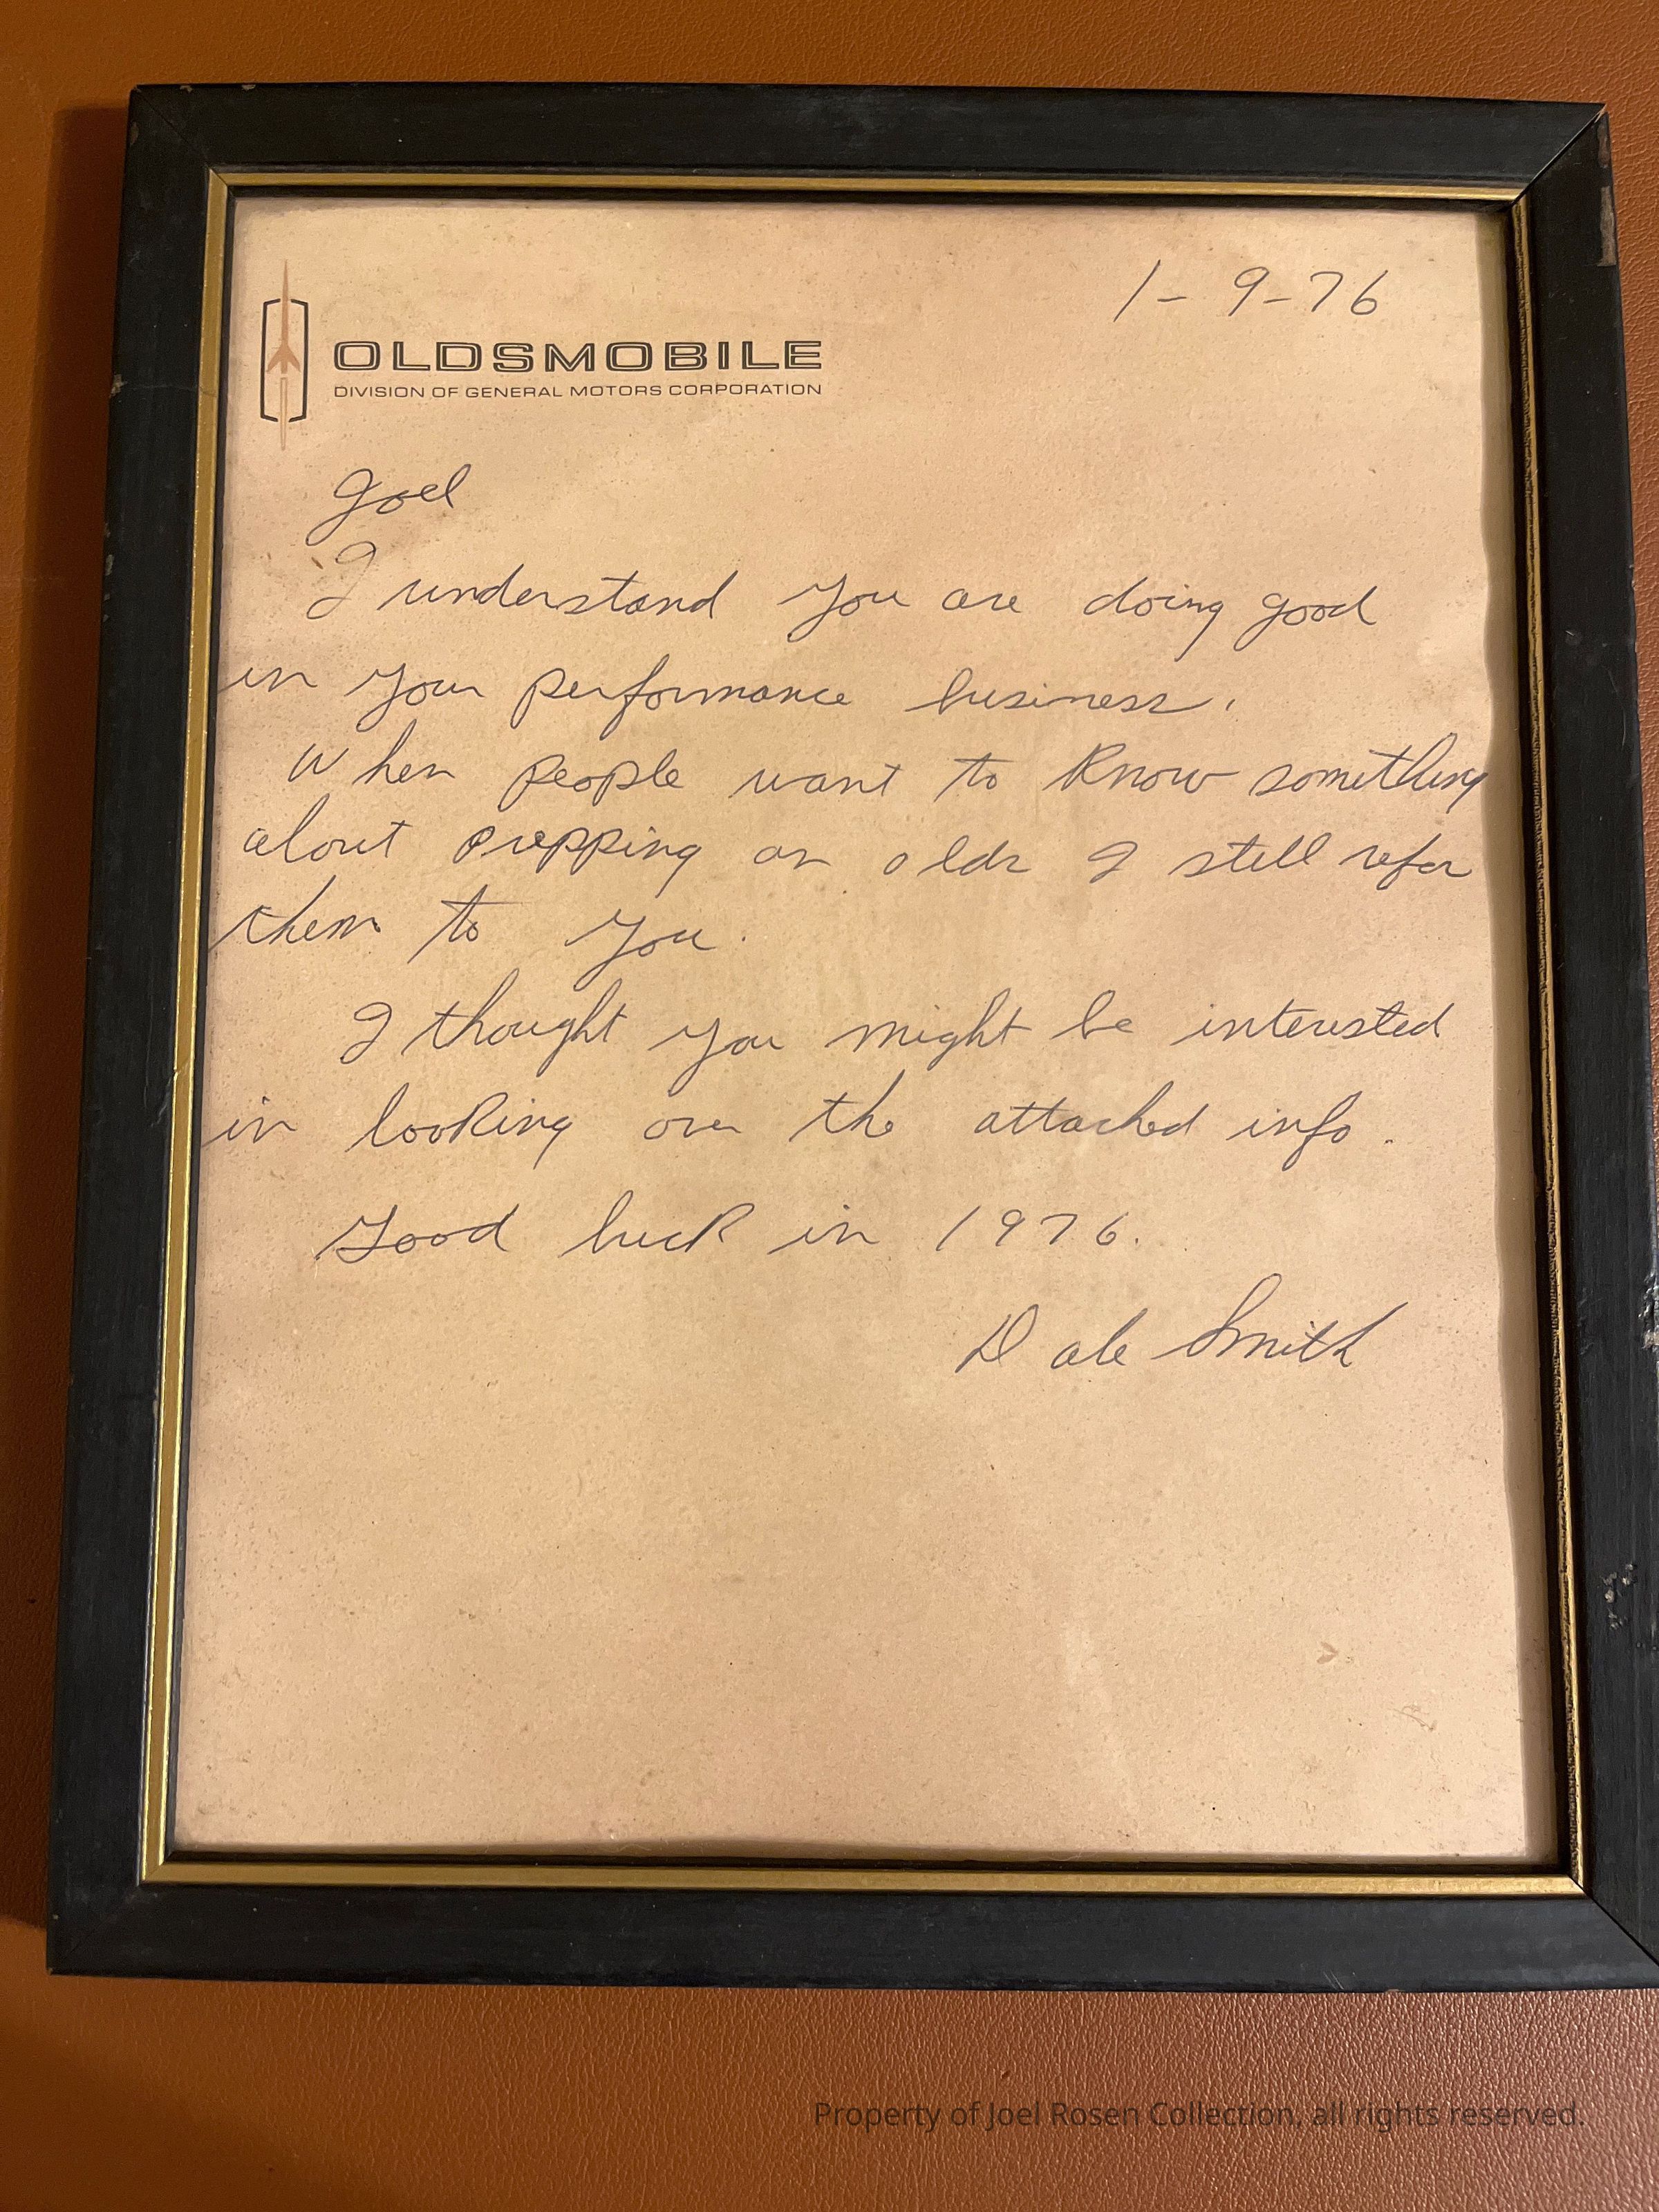 1-9-76
OLDSMOBILE
DIVISION OF GENERAL MOTORS CORPORATION
Joel
I understand you are doing good
in your performance business.
When people want to know something
about prepping an olds I still refer
them to you.
I thought you might be interested
in looking over the attached info.
Good luck in 1976.
Dale Smith
Property of Joel Rosen Collection, all rights reserved.